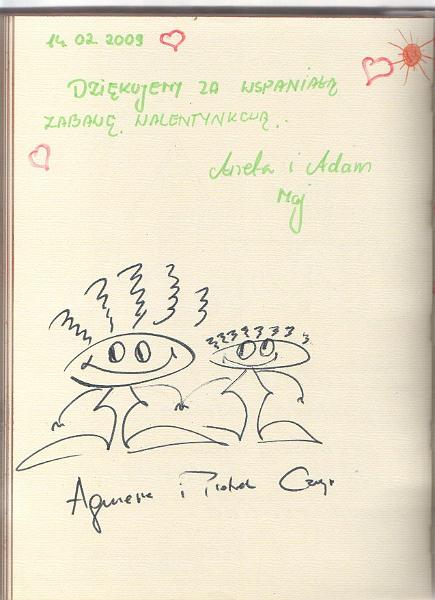 14.02.2009
DZIĘKUJEMY ZA WSPANIAŁĄ
ZABAWĘ WALENTYNKOWĄ.
Aneta i Adam
Maj
Agnieszka i Piotrek